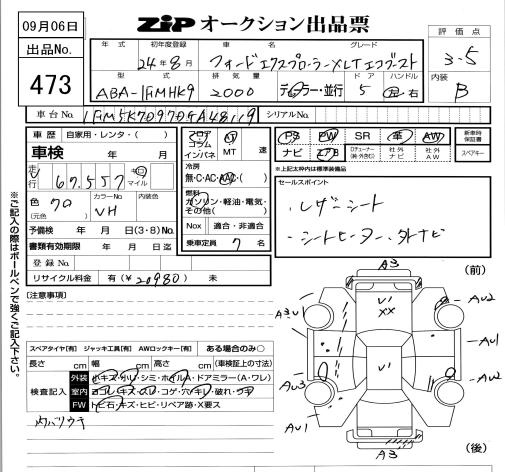 09月06日
ZIP オークション出品票
出品No.
473
評価点
3.5
内装
B
年式 初年度登録 車名 グレード
24年8月 フォードエクスプローラーXLTエコブースト
型式 排気量 ドア ハンドル
ABA-1FMHK9 2000 ディーラー・並行 5 左・右
車台No. シリアルNo.
車歴 自家用・レンタ・( )
車検 年 月 日迄
走行 67,557 キロ マイル
色 クロ カラーNo. UH 内装色
(元色)
予備検 年 月 日(3・8)No.
書類有効期限 年 月 日迄
登録No.
リサイクル料金 有(¥20980)
フロア コラム インパネ AT MT 速
冷房
無・C・AC・AAC・( )
燃料
ガソリン・軽油・電気・その他( )
Nox 適合・非適合
乗車定員 7名
PS PW SR 革 AW
ナビ エアB
社外ナビ 社外AW
新車時保証書
スペアキー
*上記太枠内は標準装備品
セールスポイント
・レザーシート
・シートヒーター、外ナビ
※ご記入の際はボールペンで強くご記入下さい。
[注意事項]
スペアタイヤ[有] ジャッキ工具[有] AWロックキー[有] ある場合のみ○
長さ cm 幅 cm 高さ cm (車検証上の寸法)
検査記入
外装 小キズ・小U・シミ・ホイルA・ドアミラー(A・ワレ)
室内 ヨゴレ・キズ・スレ・コゲ・穴・ハレ・破れ・ウキ
FW トビ石・キズ・ヒビ・リペア跡・X要ス
内バリウキ
(前)
A3
A3U1
U1
XX
AU2
AU1
U1
AU3
AU2
AU1
A3
(後)